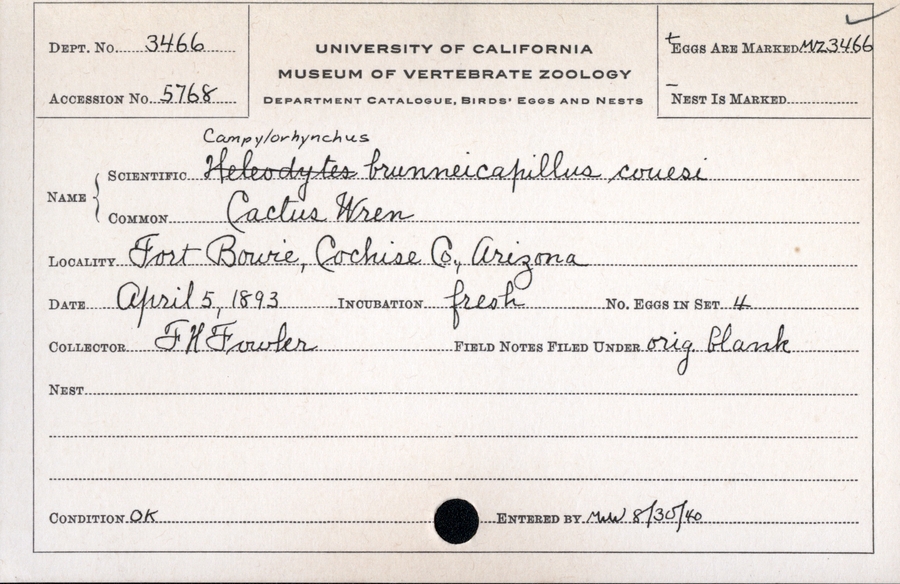 Dept. No. 3466
Accession No. 5768
UNIVERSITY OF CALIFORNIA
MUSEUM OF VERTEBRATE ZOOLOGY
Department Catalogue, Birds' Eggs and Nests
+ Eggs Are Marked MVZ3466
- Nest Is Marked
Campylorhynchus
Name { Scientific Heleodytes brunneicapillus couesi
Common Cactus Wren
Locality Fort Bowie, Cochise Co., Arizona
Date April 5, 1893 Incubation fresh No. Eggs in Set 4
Collector F H Fowler Field Notes Filed Under orig blank
Nest
Condition OK Entered by 8/30/40